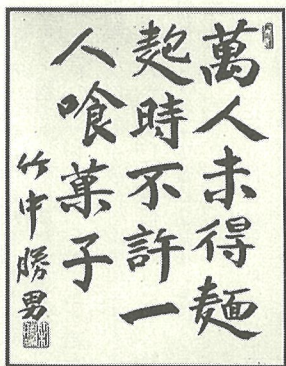 萬人未得麵
麭時不許一
人喰菓子
竹中勝男